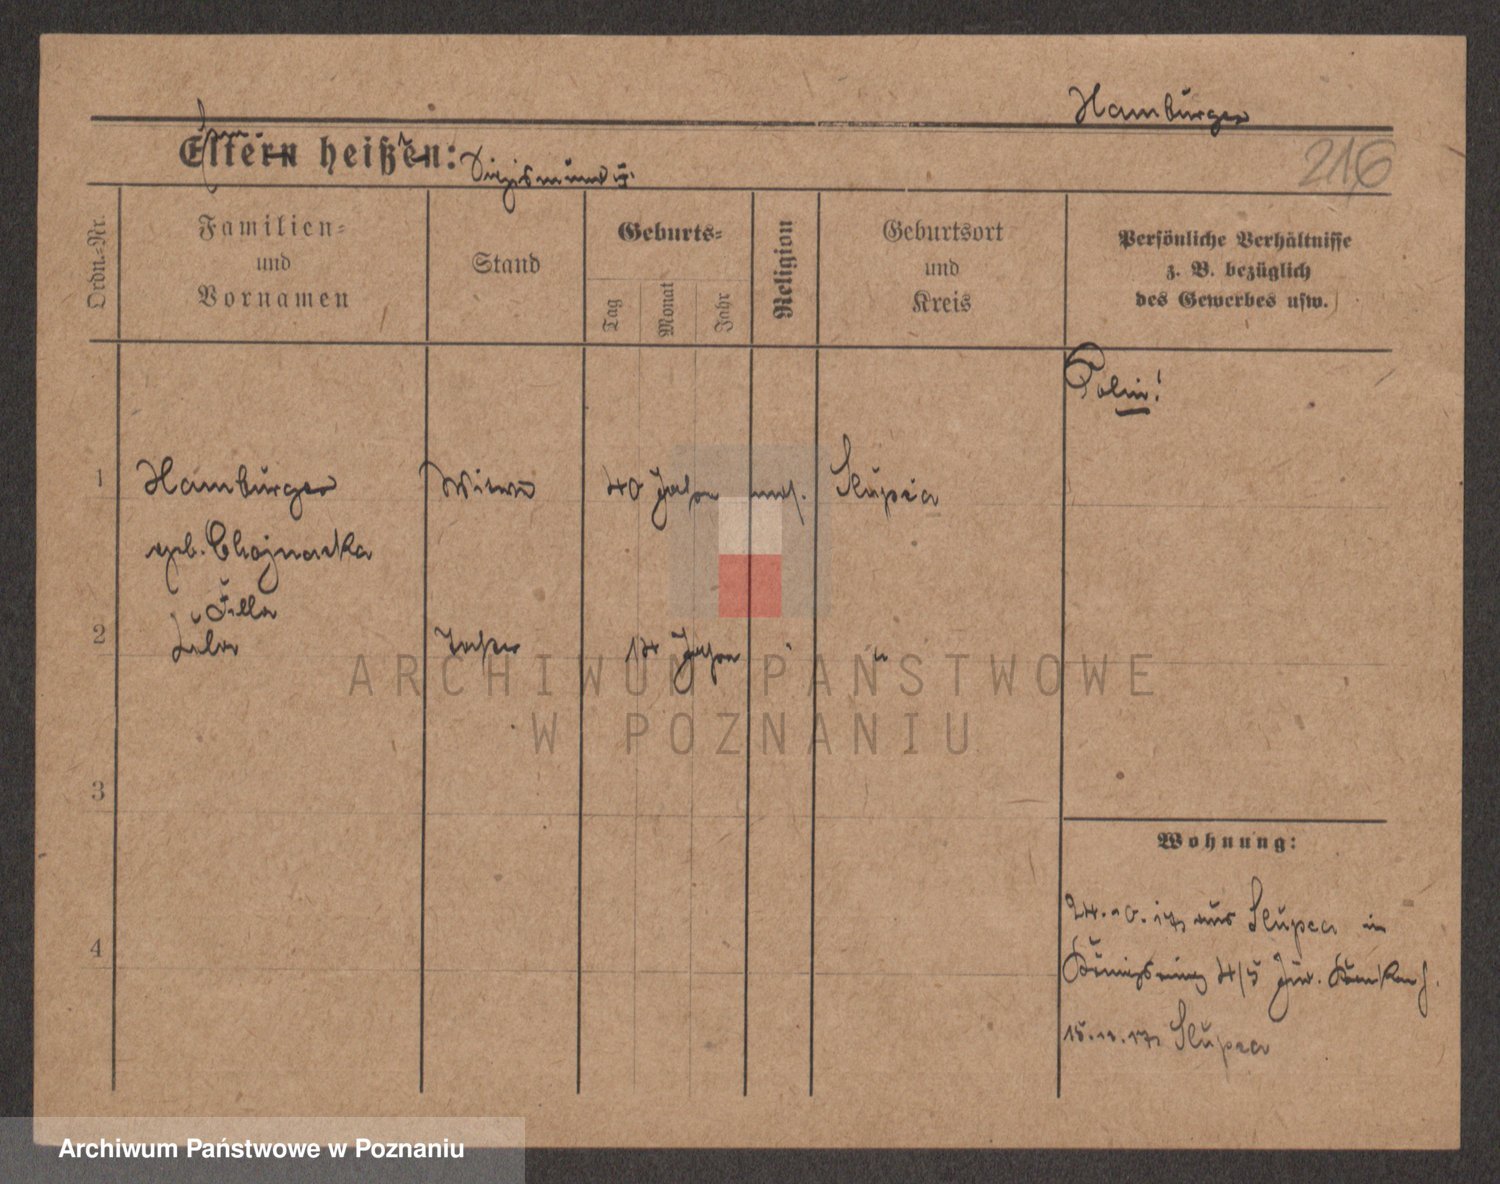 Hamburger
216
Eltern heißen: Sigismund
Ordn.-Nr.
Familien-
und
Vornamen
Stand
Geburts-
Tag
Monat
Jahr
Religion
Geburtsort
und
Kreis
Persönliche Verhältnisse
z. B. bezüglich
des Gewerbes usw.
Polin!
1 Hamburger Witwe 40 Jahre mos. Slupca
geb. Chojnacka
2
17 Jahre "
ARCHIWUM PAŃSTWOWE
W POZNANIU
3
4
Wohnung:
24.10.17 aus Slupca in
Königsring 4/5 Jüd. Krankenh.
15.11.17 Slupca
Archiwum Państwowe w Poznaniu